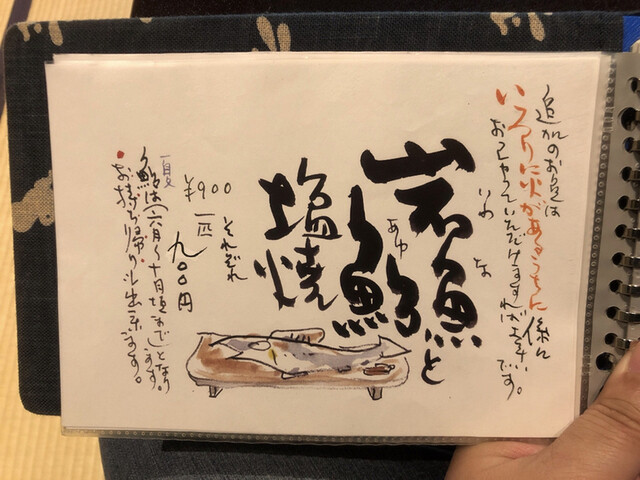 追加のお魚は
いろりに火があるうちに係に
おっしゃっていただけますれば幸いです。
いわ な
岩魚と
あゆ
鮎
塩焼
それぞれ
一匹 九〇〇円
¥900
夏
鮎は(六月〜十月頃まで)となります。
・お持ち帰り出来ます。